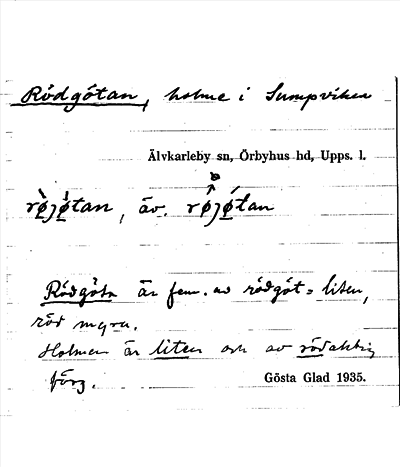 Rödgötan, holme i Sumpviken
Älvkarleby sn, Örbyhus hd, Upps. l.
rø̀jø̀tan, äv. rø̂jǿtan
Rödgöta är fem. av rödgöt = liten,
röd myra.
Holmen är liten och av rödaktig
färg.
Gösta Glad 1935.